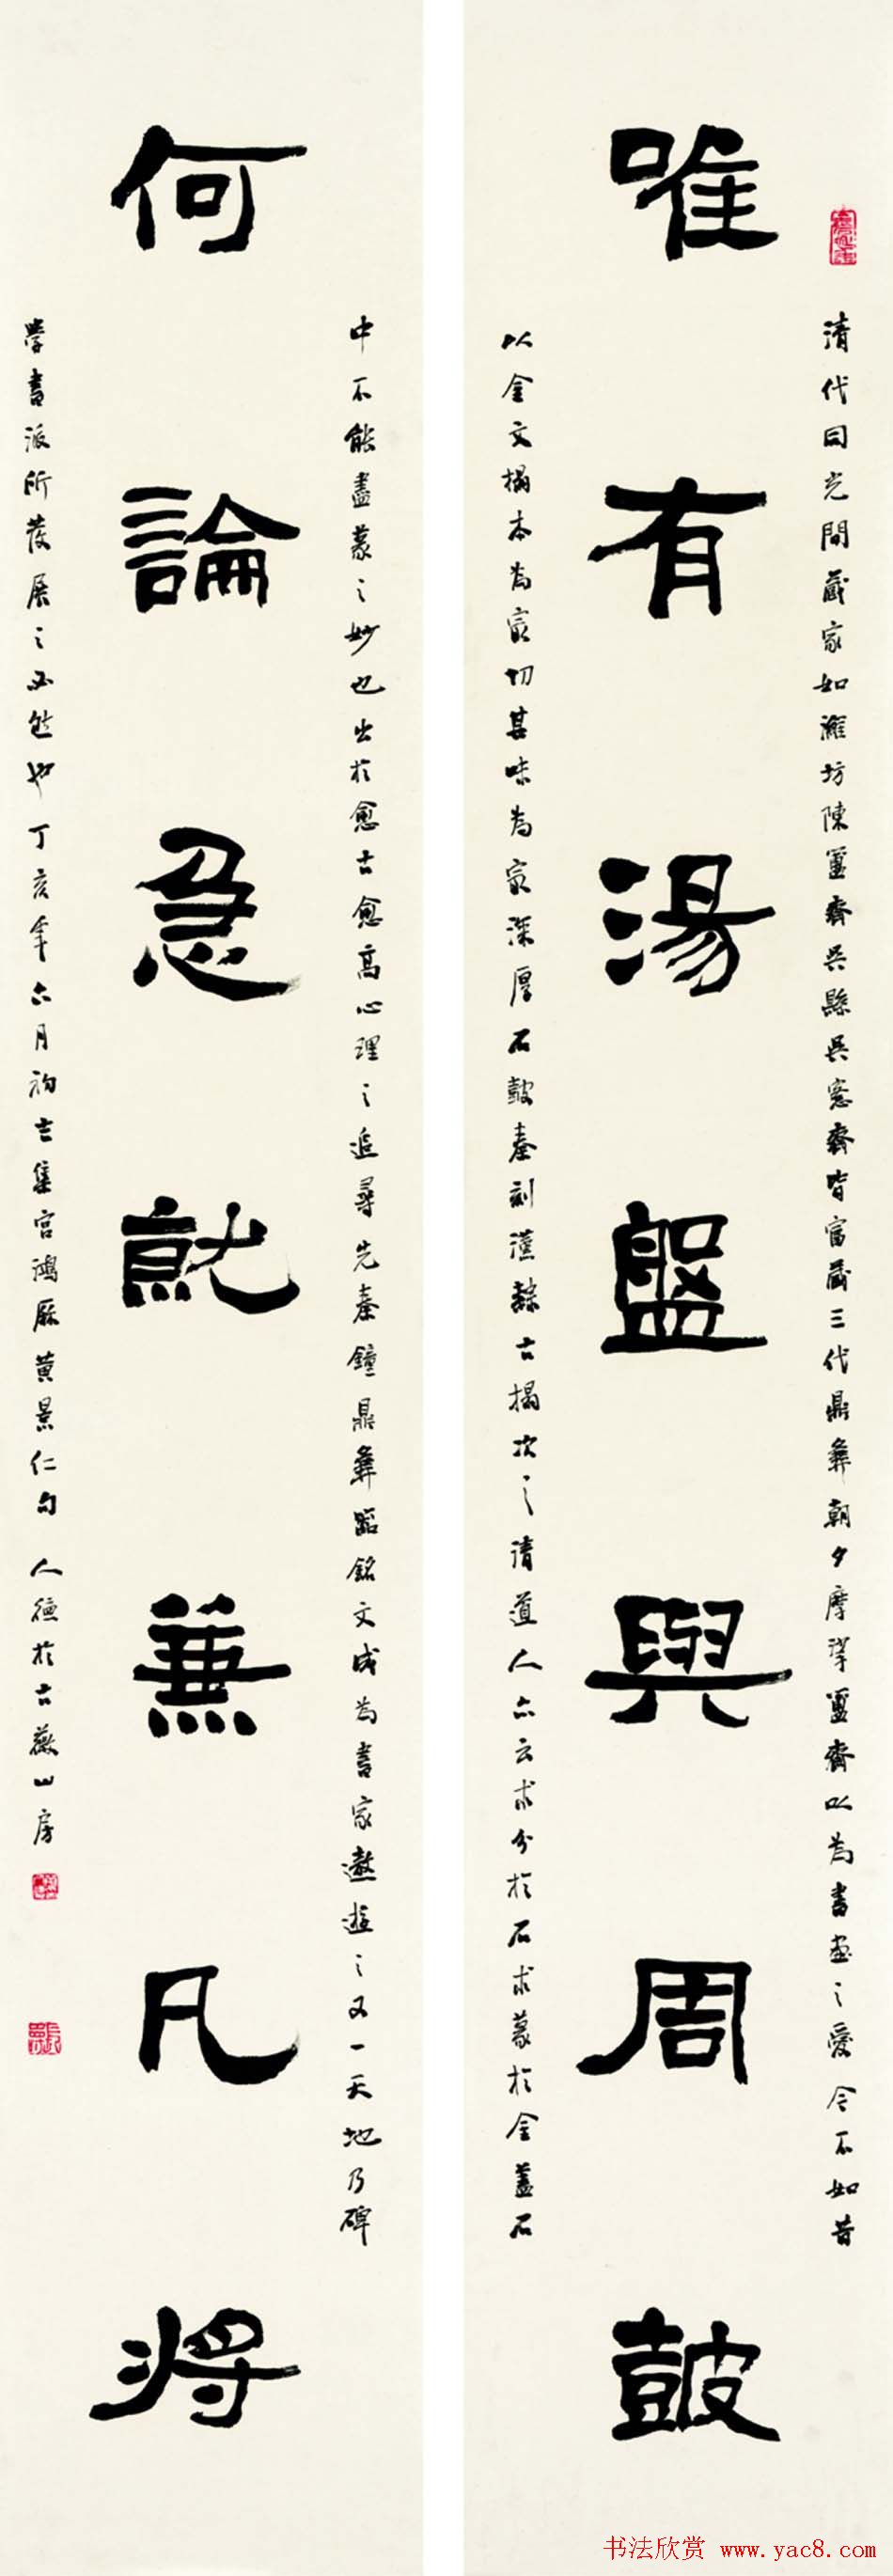 唯有湯盤與周鼓
清代同光間藏家如濰坊陳簠齋吳縣吳愙齋皆富藏三代鼎彝朝夕摩挲簠齋以為書畫之愛今不如昔
以金文榻本為最切其味為最深厚石鼓秦刻漢隸古搨次之清道人亦云求分於石求篆於金蓋石
中不能盡篆之妙也出於愈古愈高心理之追尋先秦鐘鼎彝器銘文成為書家遨遊之又一天地乃碑
何論急就兼凡將
學書派所發展之必然也丁亥年六月初吉集宮鴻歷黃景仁句 人德於古薇山房
书法欣赏 www.yac8.com